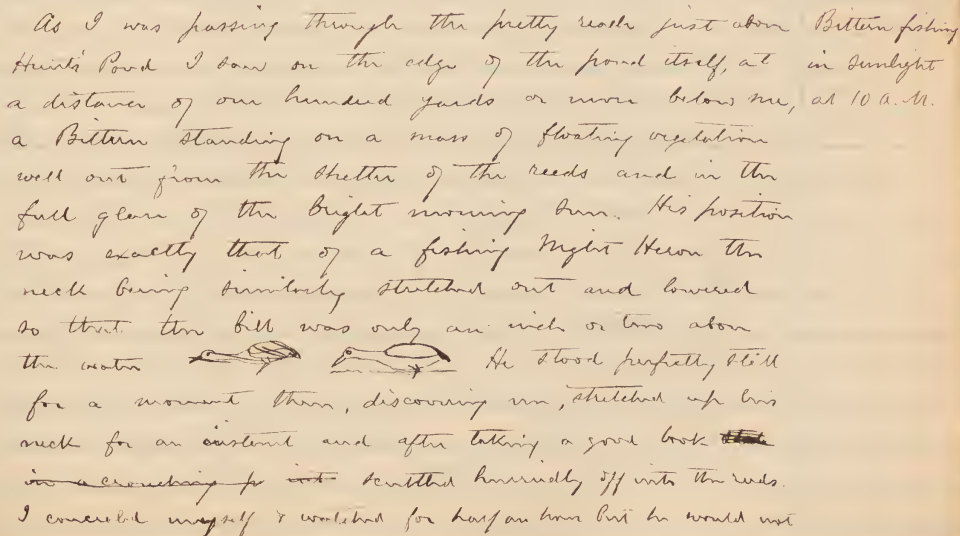 As I was passing through the pretty reach just above
Hunt's Pond I saw on the edge of the pond itself, at
a distance of one hundred yards or more below me,
a Bittern standing on a mass of floating vegetation
well out from the shelter of the reeds and in the
full glare of the bright morning sun. His position
was exactly that of a fishing Night Heron the
neck being similarly stretched out and lowered
so that the bill was only an inch or two above
the water He stood perfectly still
for a moment then, discovering me, stretched up his
neck for an instant and after taking a good look
in a crouching po into scuttled hurriedly off into the reeds.
I concealed myself & watched for half an hour but he would not
Bittern fishing
in sunlight
at 10 A.M.